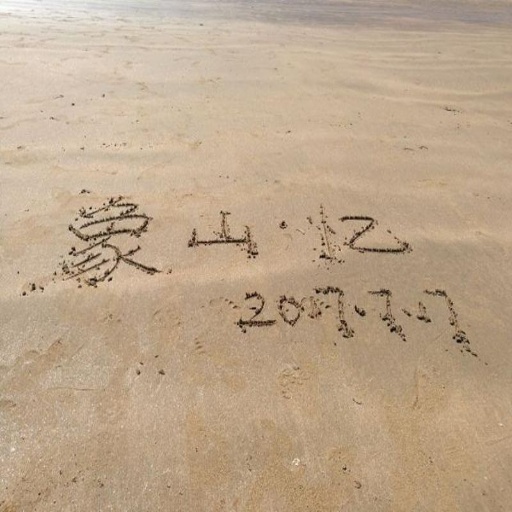 象山·忆
2017.7.17